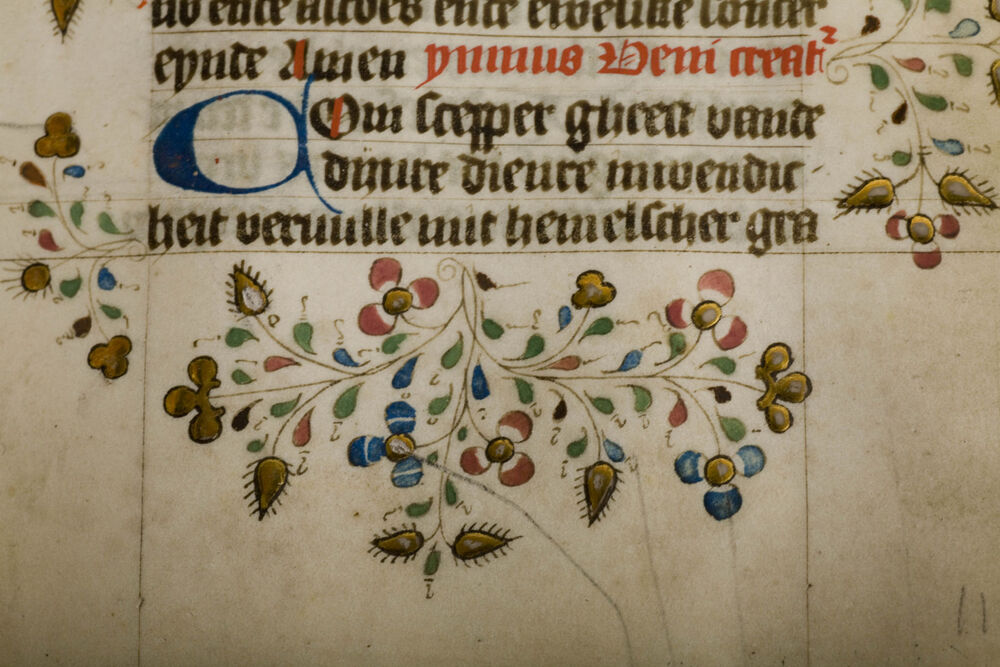 nv ende altoes ende ewelike sonder
eynde Amen ymnus Veni creatꝛ
COm scepper gheest vande
dijnre dienre inwendic
heit veruulle mit hemelscher gra
11